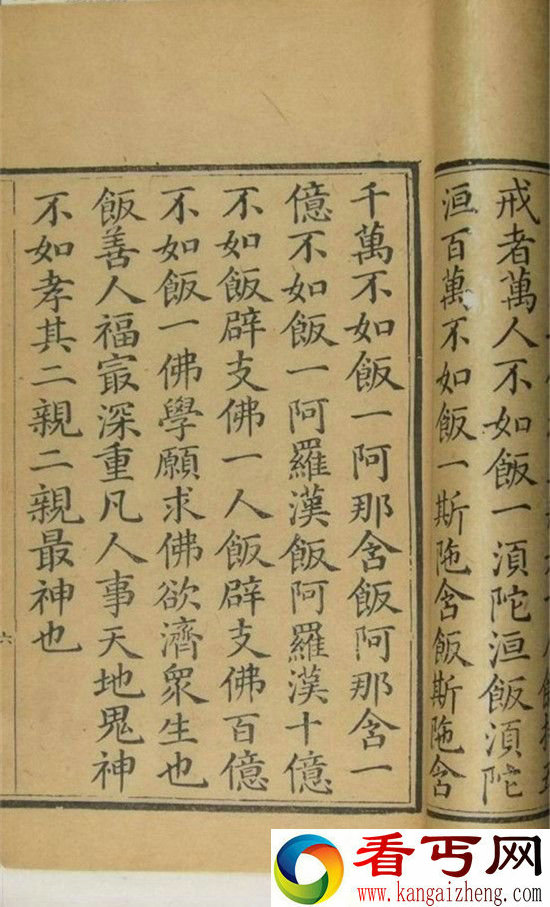 戒者萬人不如飯一湏陀洹飯湏陀
洹百萬不如飯一斯陁含飯斯陁含
千萬不如飯一阿那含飯阿那含一
億不如飯一阿羅漢飯阿羅漢十億
不如飯辟支佛一人飯辟支佛百億
不如飯一佛學願求佛欲濟眾生也
飯善人福冣深重凡人事天地鬼神
不如孝其二親二親最神也
六
看丐网
www.kangaizheng.com